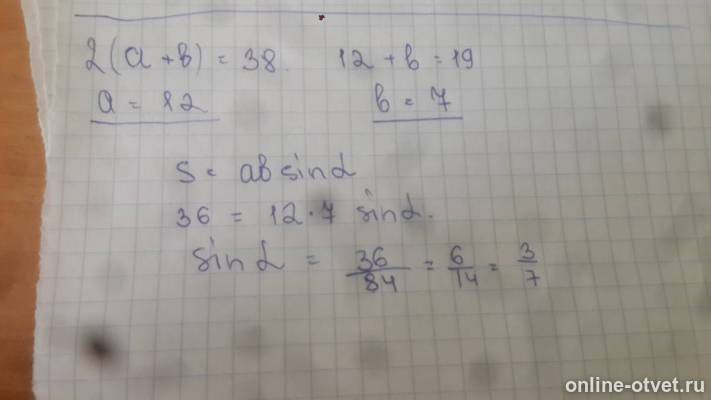 2(a+b) = 38. 12 + b = 19
a = 12 b = 7
S = ab sinα
36 = 12·7 sinα.
sinα = 36/84 = 6/14 = 3/7
online-otvet.ru